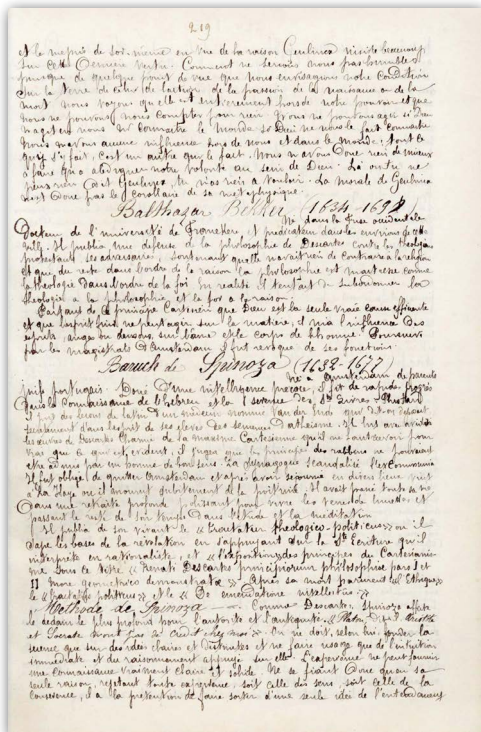 219
et le mepris de soi-meme en vue de la raison Geulincx insiste beaucoup
sur cette derniere vertu. Comment ne serions nous pas humbles
puisque de quelque point de vue que nous envisagions notre condition
sur la terre de celui de l'action, de la passion de la naissance ou de la
mort nous voyons qu'elle est entierement hors de notre pouvoir et que
nous ne pouvons nous compter pour rien. Nous ne pouvons agir si Dieu
n'agit en nous ni connaitre le monde si Dieu ne nous le fait connaitre
Nous n'avons aucune influence hors de nous et dans le monde, tout ce
qui s'y fait, c'est un autre qui le fait. Nous n'avons donc rien de mieux
à faire qu'a abdiquer notre volonté au sein de Dieu. Là ou tu ne
peux rien (dit Geulincx, tu n'as rien à vouloir. La morale de Geulincx
n'est donc pas le corollaire de sa metaphysique
Balthazar Bekker (1634-1698)
Né dans la Frise occidentale
Docteur de l'université de Franeker, et predicateur dans les environs de cette
ville. Il publia une defense de la philosophie de Descartes contre les theologiens
protestants ses adversaires, soutenant qu'elle n'avait rien de contraire à la religion
et que du reste dans l'ordre de la raison la philosophie est maitresse comme
la theologie dans l'ordre de la foi. En realité il tentait de subordonner la
theologie a la philosophie et la foi a la raison.
Partant de ce principe Cartesien que Dieu est la seule vraie cause efficiente
et que l'esprit humain ne peut agir sur la matiere, il nia l'influence des
esprits, anges ou demons, sur l'âme et le corps de l'homme. Poursuivi
par les magistrats d'Amsterdam il fut revoqué de ses fonctions
Baruch de Spinoza (1632-1677)
Né a Amsterdam de parents
juifs portugais. Doué d'une intelligence precoce, il fit de rapides progrès
dans la connaissance de l'hebreu et la science des Stes Ecritures
Il prit des lecons de latin d'un medecin nomme Van den Ende qui
secretement dans l'esprit de ses eleves des semences d'atheisme. Il lut avec avidité
les œuvres de Descartes. Charmé de la maxime Cartesienne qu'il ne faut recevoir pour
vrai que ce qui est evident, il jugea que les principes des rabbins ne pouvaient
etre admis par un homme de bon sens. La synagogue scandalisée l'excommunia
Il fut obligé de quitter Amsterdam et après avoir sejourné en divers lieux vint
a La Haye ou il mourut subitement de la phtisie. Il avait passé toute sa vie
dans une retraite profonde polissant pour vivre les verres de lunettes et
passant le reste de son temps dans l'etude et la meditation
Il publia de son vivant le « tractatus theologico-politicus » ou il
sape les bases de la revelation en s'appuyant sur la Ste Ecriture qu'il
interprète en rationaliste, et « l'exposition des principes du Cartesianis-
me sous le titre « Renati Descartes principiorum philosophiæ pars I et
II more geometrico demonstratæ ». Après sa mort parurent « l'Ethique »
le « tractatus politicus » et le « De emendatione intellectus »
Methode de Spinoza — Comme Descartes, Spinoza affecte
le dedain le plus profond pour l'autorité et l'antiquité. « Platon, dit-il Aristote
et Socrate n'ont pas de credit chez moi ». On ne doit, selon lui, fonder la
science que sur des idées claires et distinctes et ne faire usage que de l'intuition
immediate et du raisonnement appuyé sur elle. L'experience ne peut fournir
une connaissance vraiment claire et solide. Ne se fiant donc qu'en sa
seule raison, rejetant toute experience, soit celle du sens, soit celle de la
conscience, il a la pretention de faire sortir d'une seule idée de l'entendement